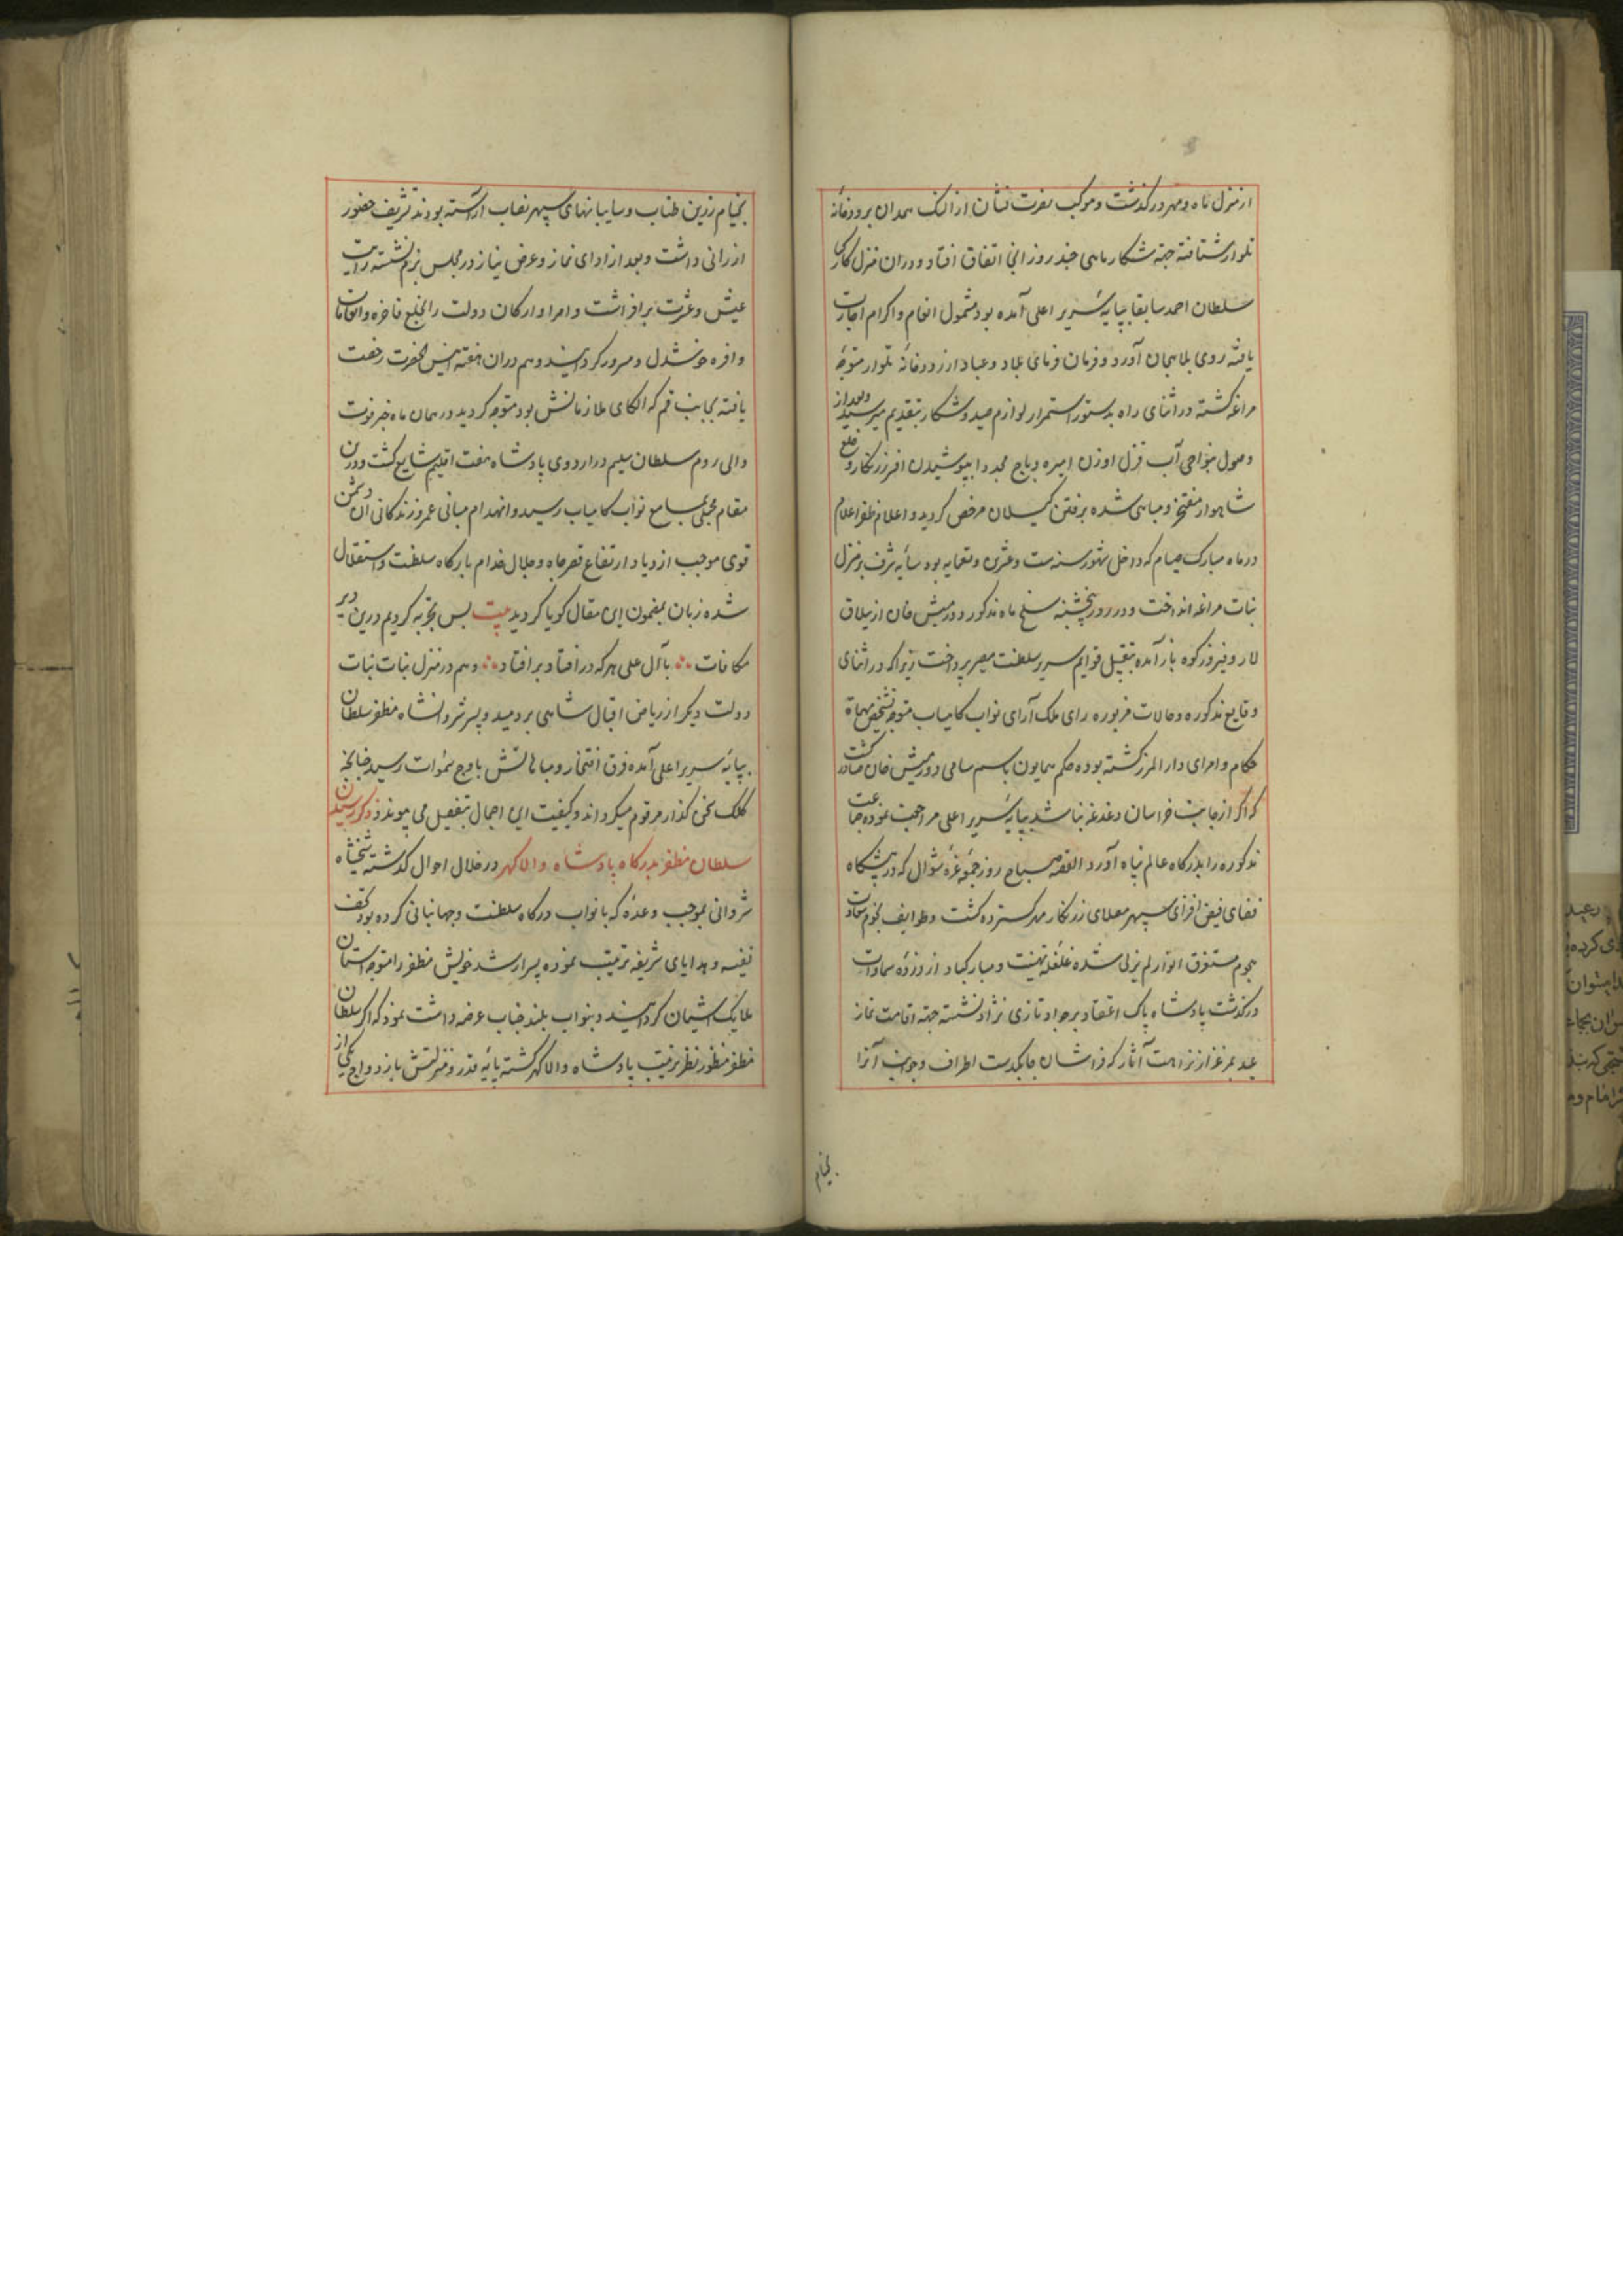 از منزل ماه و مهر درگذشت و موکب نصرت نشان از النک همدان برودخانهٔ
تلوار شتافته جهة شکار ماهی چند روز آنجا اتفاق افتاد و در ان منزل کارکیا
سلطان احمد سابقا بپایهٔ سریر اعلی آمده بود مشمول انعام و اکرام اجازت
یافته روی بلاهجان آورد و فرمان فرمای بلاد و عباد از رودخانهٔ تلوار متوجه
مراغه کشته در اثنای راه بدستور استمرار لوازم صید و شکار بتقدیم میرسید و بعد از
وصول بنواحی آب قزل اوزن امیره دباج مجددا بپوشیدن افسر زرنکار و خلع
شاهوار مفتخر و مباهی شده برفتن کیلان مرخص کردید و اعلام ظفر اعلام
در ماه مبارک صیام که داخل شهور سنه ست و عشرین و تسعمایه بود سایهٔ شرف بر منزل
نبات مراغه انداخت و در روز پنجشنبه سلخ ماه مذکور دورمیش خان از ییلاق
لار و فیروزکوه باز آمده بتقبیل قوایم سریر سلطنت مصیر پرداخت زیرا که در اثنای
وقایع مذکوره و حالات مزبوره رای ملک آرای نواب کامیاب متوجه تشخیص مهماة
حکام و امرای دار المرز کشته بوده حکم همایون باسم سامی دورمیش خان صادر کشت
که اکر از جانب خراسان دغدغه نباشد بپایهٔ سریر اعلی مراجعت نموده جماعت
مذکوره را بدرکاه عالم پناه آورد القصه صباح روز جمعه غرهٔ شوال که در پیشکاه
فضای فیض افزای سپهر معلای زرنکار مهر کسترده کشت و طوایف نجوم سعادت
هجوم مستغرق انوار لم یزلی شده غلغلهٔ تهنیت و مبارکباد از ذروهٔ سماوات
درکذشت پادشاه پاک اعتقاد بر جواد تازی نژاد نشسته جهة اقامت نماز
عید بمرغزار نزاهت آثار که فراشان چابکدست اطراف و جوانب آنرا
بخیام
بخیام زرین طناب و سایبانهای سپهر نقاب آراسته بودند تشریف حضور
ارزانی داشت و بعد از ادای نماز و عرض نیاز در مجلس بزم نشسته رایت
عیش و عشرت برافراشت و امرا و ارکان دولت را بخلع فاخره و انعامات
وافره خوشدل و مسرور کردانید و هم دران هفته انیس الحضرت رخصت
یافته بجانب قم که الکای ملازمانش بود متوجه کردید در همان ماه خبر فوت
والی روم سلطان سلیم در اردوی پادشاه هفت اقلیم شایع کشت و درین
مقام مجملی بمسامع نواب کامیاب رسید و انهدام مبانی عمر و زندکانی آن دشمن
قوی موجب ازدیاد ارتفاع قصر جاه و جلال خدام بارکاه سلطنت و استقلال
شده زبان بمضمون این مقال کویا کردید بیت بس تجربه کردیم درین دیر
مکافات با آل علی هرکه در افتاد بر افتاد و هم در منزل نبات نبات
دولت دیکر از ریاض اقبال شاهی بر دمید و پسر شروانشاه مظفر سلطان
بپایهٔ سریر اعلی آمده فرق افتخار و مباهاتش باوج سموات رسید چنانچه
کلک سخن کذار مرقوم میکرداند و کیفیت این اجمال بتفصیل می پیوندد ذکر رسیدن
سلطان مظفر بدرکاه پادشاه والاکهر در خلال احوال کذشته شیخشاه
شروانی بموجب وعدهٔ که با نواب درکاه سلطنت و جهانبانی کرده بود تحف
نفیسه و هدایای شریفه ترتیب نموده پسر ارشد خویش مظفر را متوجه آستان
ملایک آشیان کردانید و بنواب بلند جناب عرضه داشت نمود که اکر سلطان
مظفر منظور نظر تربیت پادشاه والاکهر کشته پایهٔ قدر و منزلتش بازدواج یکی از